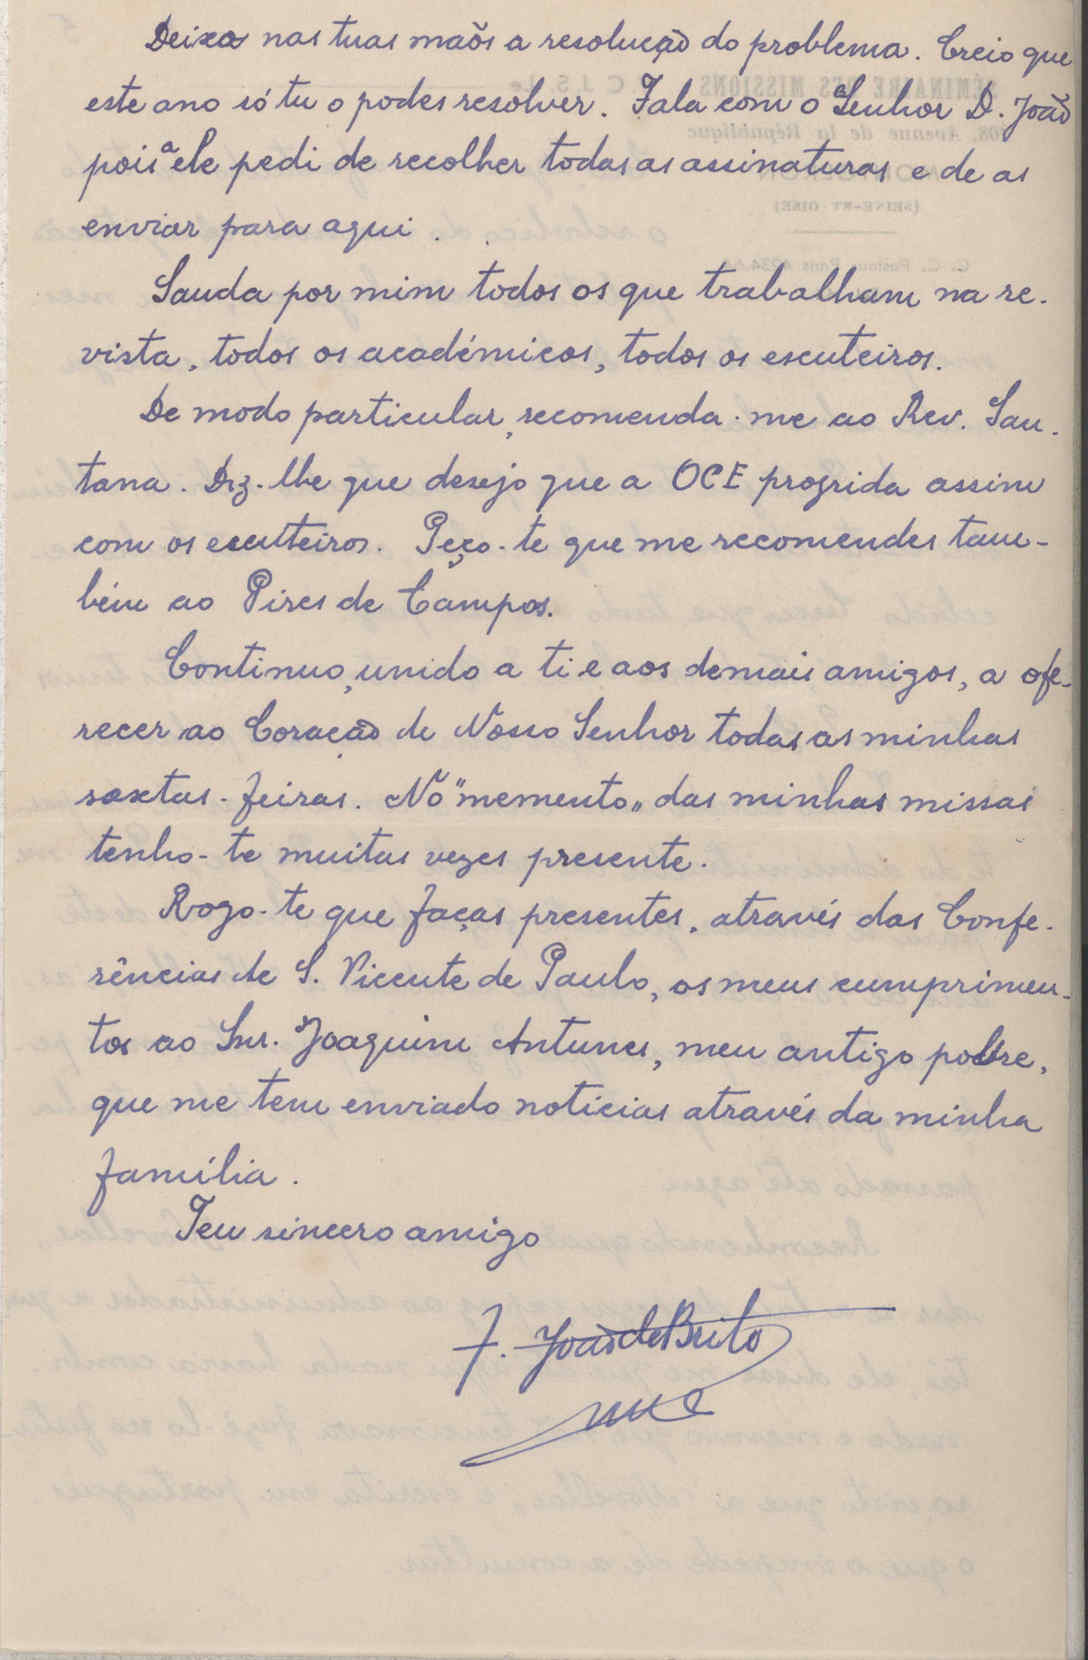 Deixo nas tuas mãos a resolução do problema. Creio que
este ano só tu o podes resolver. Fala com o Senhor D. João
pois a ele pedi de recolher todas as assinaturas e de as
enviar para aqui.
Sauda por mim todos os que trabalham na re-
vista, todos os académicos, todos os escuteiros.
De modo particular, recomenda-me ao Rev. San-
tana. Diz-lhe que desejo que a OCE progrida assim
com os escuteiros. Peço-te que me recomendes tam-
bém ao Pires de Campos.
Continuo, unido a ti e aos demais amigos, a ofe-
recer ao Coração de Nosso Senhor todas as minhas
sextas-feiras. No "memento" das minhas missas
tenho-te muitas vezes presente.
Rogo-te que faças presentes, através das Confe-
rências de S. Vicente de Paulo, os meus cumprimen-
tos ao Snr. Joaquim Antunes, meu antigo pobre,
que me tem enviado noticias através da minha
família.
Teu sincero amigo
F. João de Brito